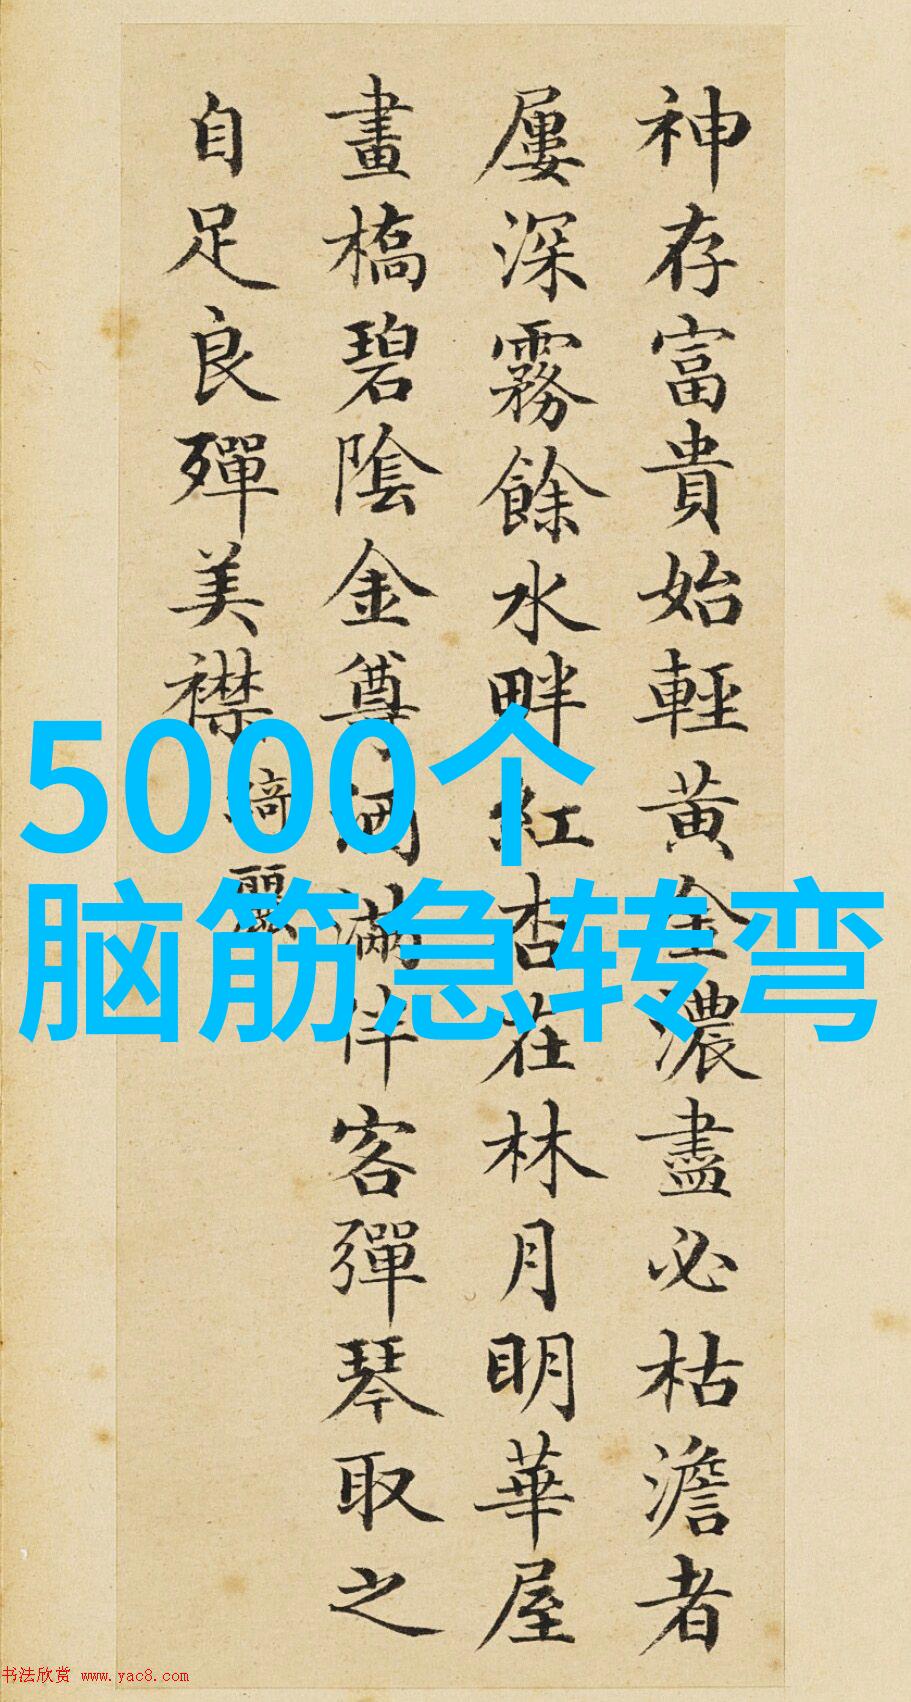 神存富貴始輕黄金濃盡必枯澹者
屢深霧餘水畔紅杏在林月明華屋
畫橋碧陰金尊酒滿伴客彈琴取之
自足良殫美襟
綺麗
5000个
脑筋急转弯
书法欣赏 www.yac8.com